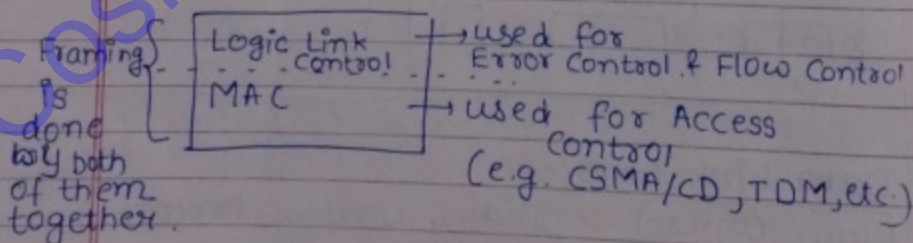 Framing
is
done
by both
of them
together.
Logic Link
Control
MAC
→ used for
Error Control & Flow Control
→ used for Access
Control
(e.g. CSMA/CD, TDM, etc.)